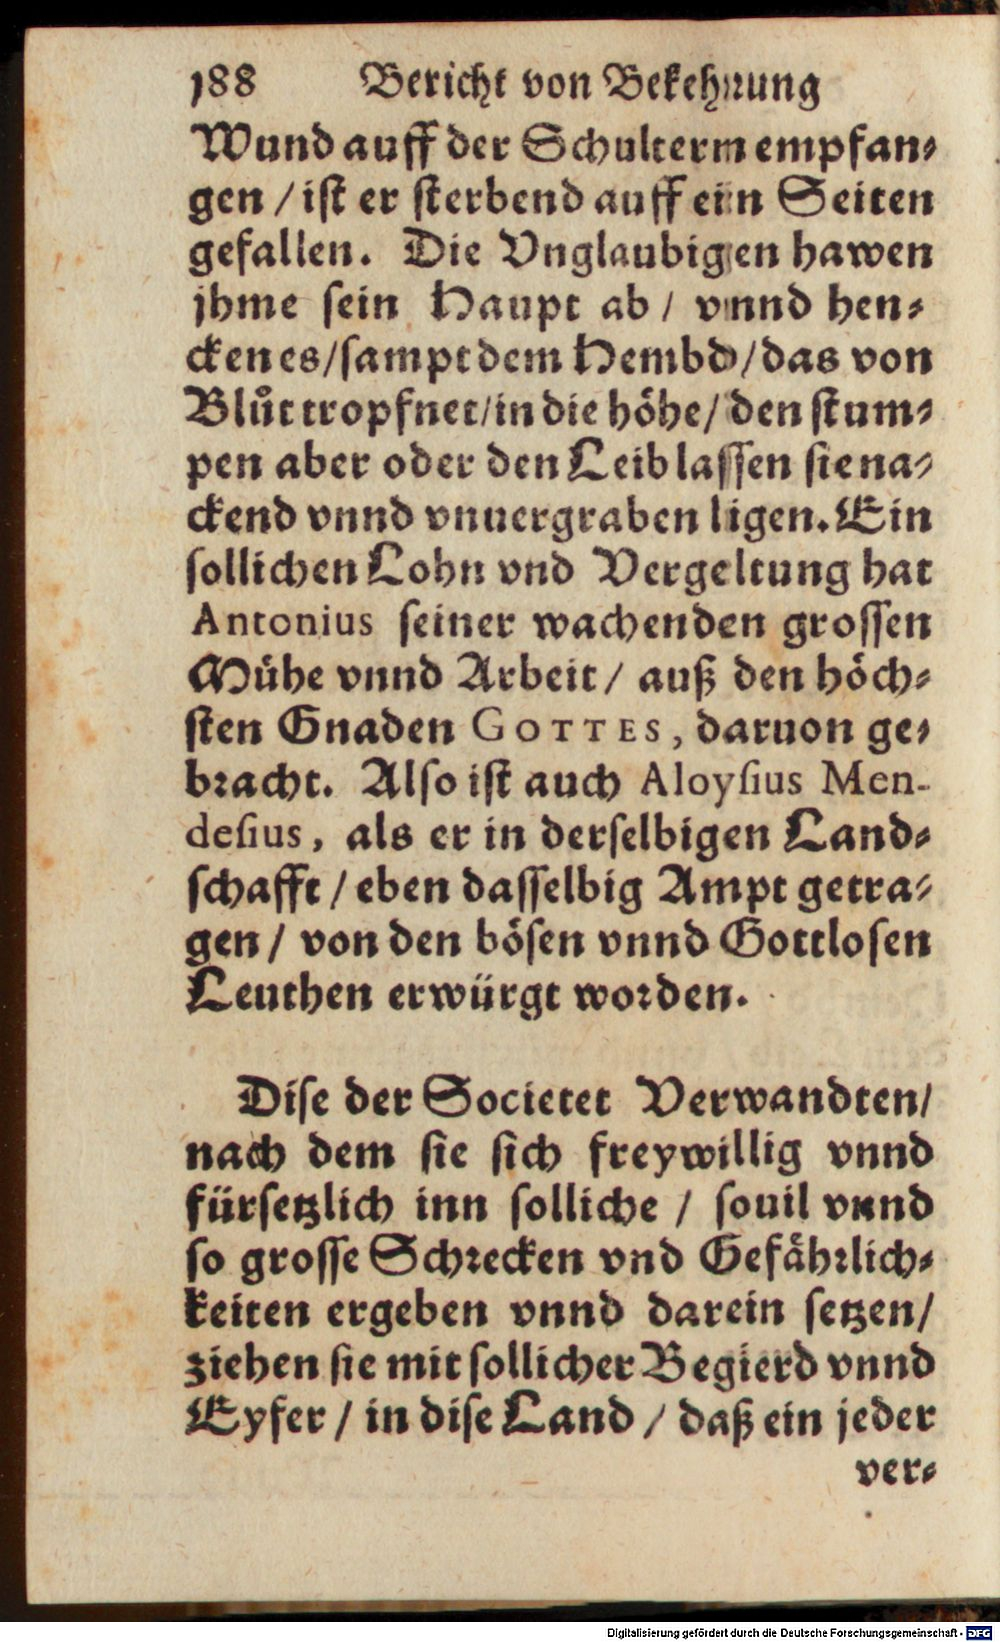 188 Bericht von Bekehrung
Wund auff der Schultern empfan⸗
gen / ist er sterbend auff ein Seiten
gefallen. Die Vnglaubigen hawen
jhme sein Haupt ab / vnnd hen⸗
cken es / sampt dem Hembd / das von
Blůt tropfnet / in die höhe / den stum⸗
pen aber oder den Leib lassen sie na⸗
ckend vnnd vnuergraben ligen. Ein
sollichen Lohn vnd Vergeltung hat
Antonius seiner wachenden grossen
Mühe vnnd Arbeit / auß den höch⸗
sten Gnaden GOTTES, daruon ge⸗
bracht. Also ist auch Aloysius Men-
desius, als er in derselbigen Land⸗
schafft / eben dasselbig Ampt getra⸗
gen / von den bösen vnnd Gottlosen
Leuthen erwürgt worden.
Dise der Societet Verwandten /
nach dem sie sich freywillig vnnd
fürsetzlich inn solliche / souil vnnd
so grosse Schrecken vnd Gefährlich⸗
keiten ergeben vnnd darein setzen /
ziehen sie mit sollicher Begierd vnnd
Eyfer / in dise Land / daß ein jeder
ver⸗
Digitalisierung gefördert durch die Deutsche Forschungsgemeinschaft - DFG